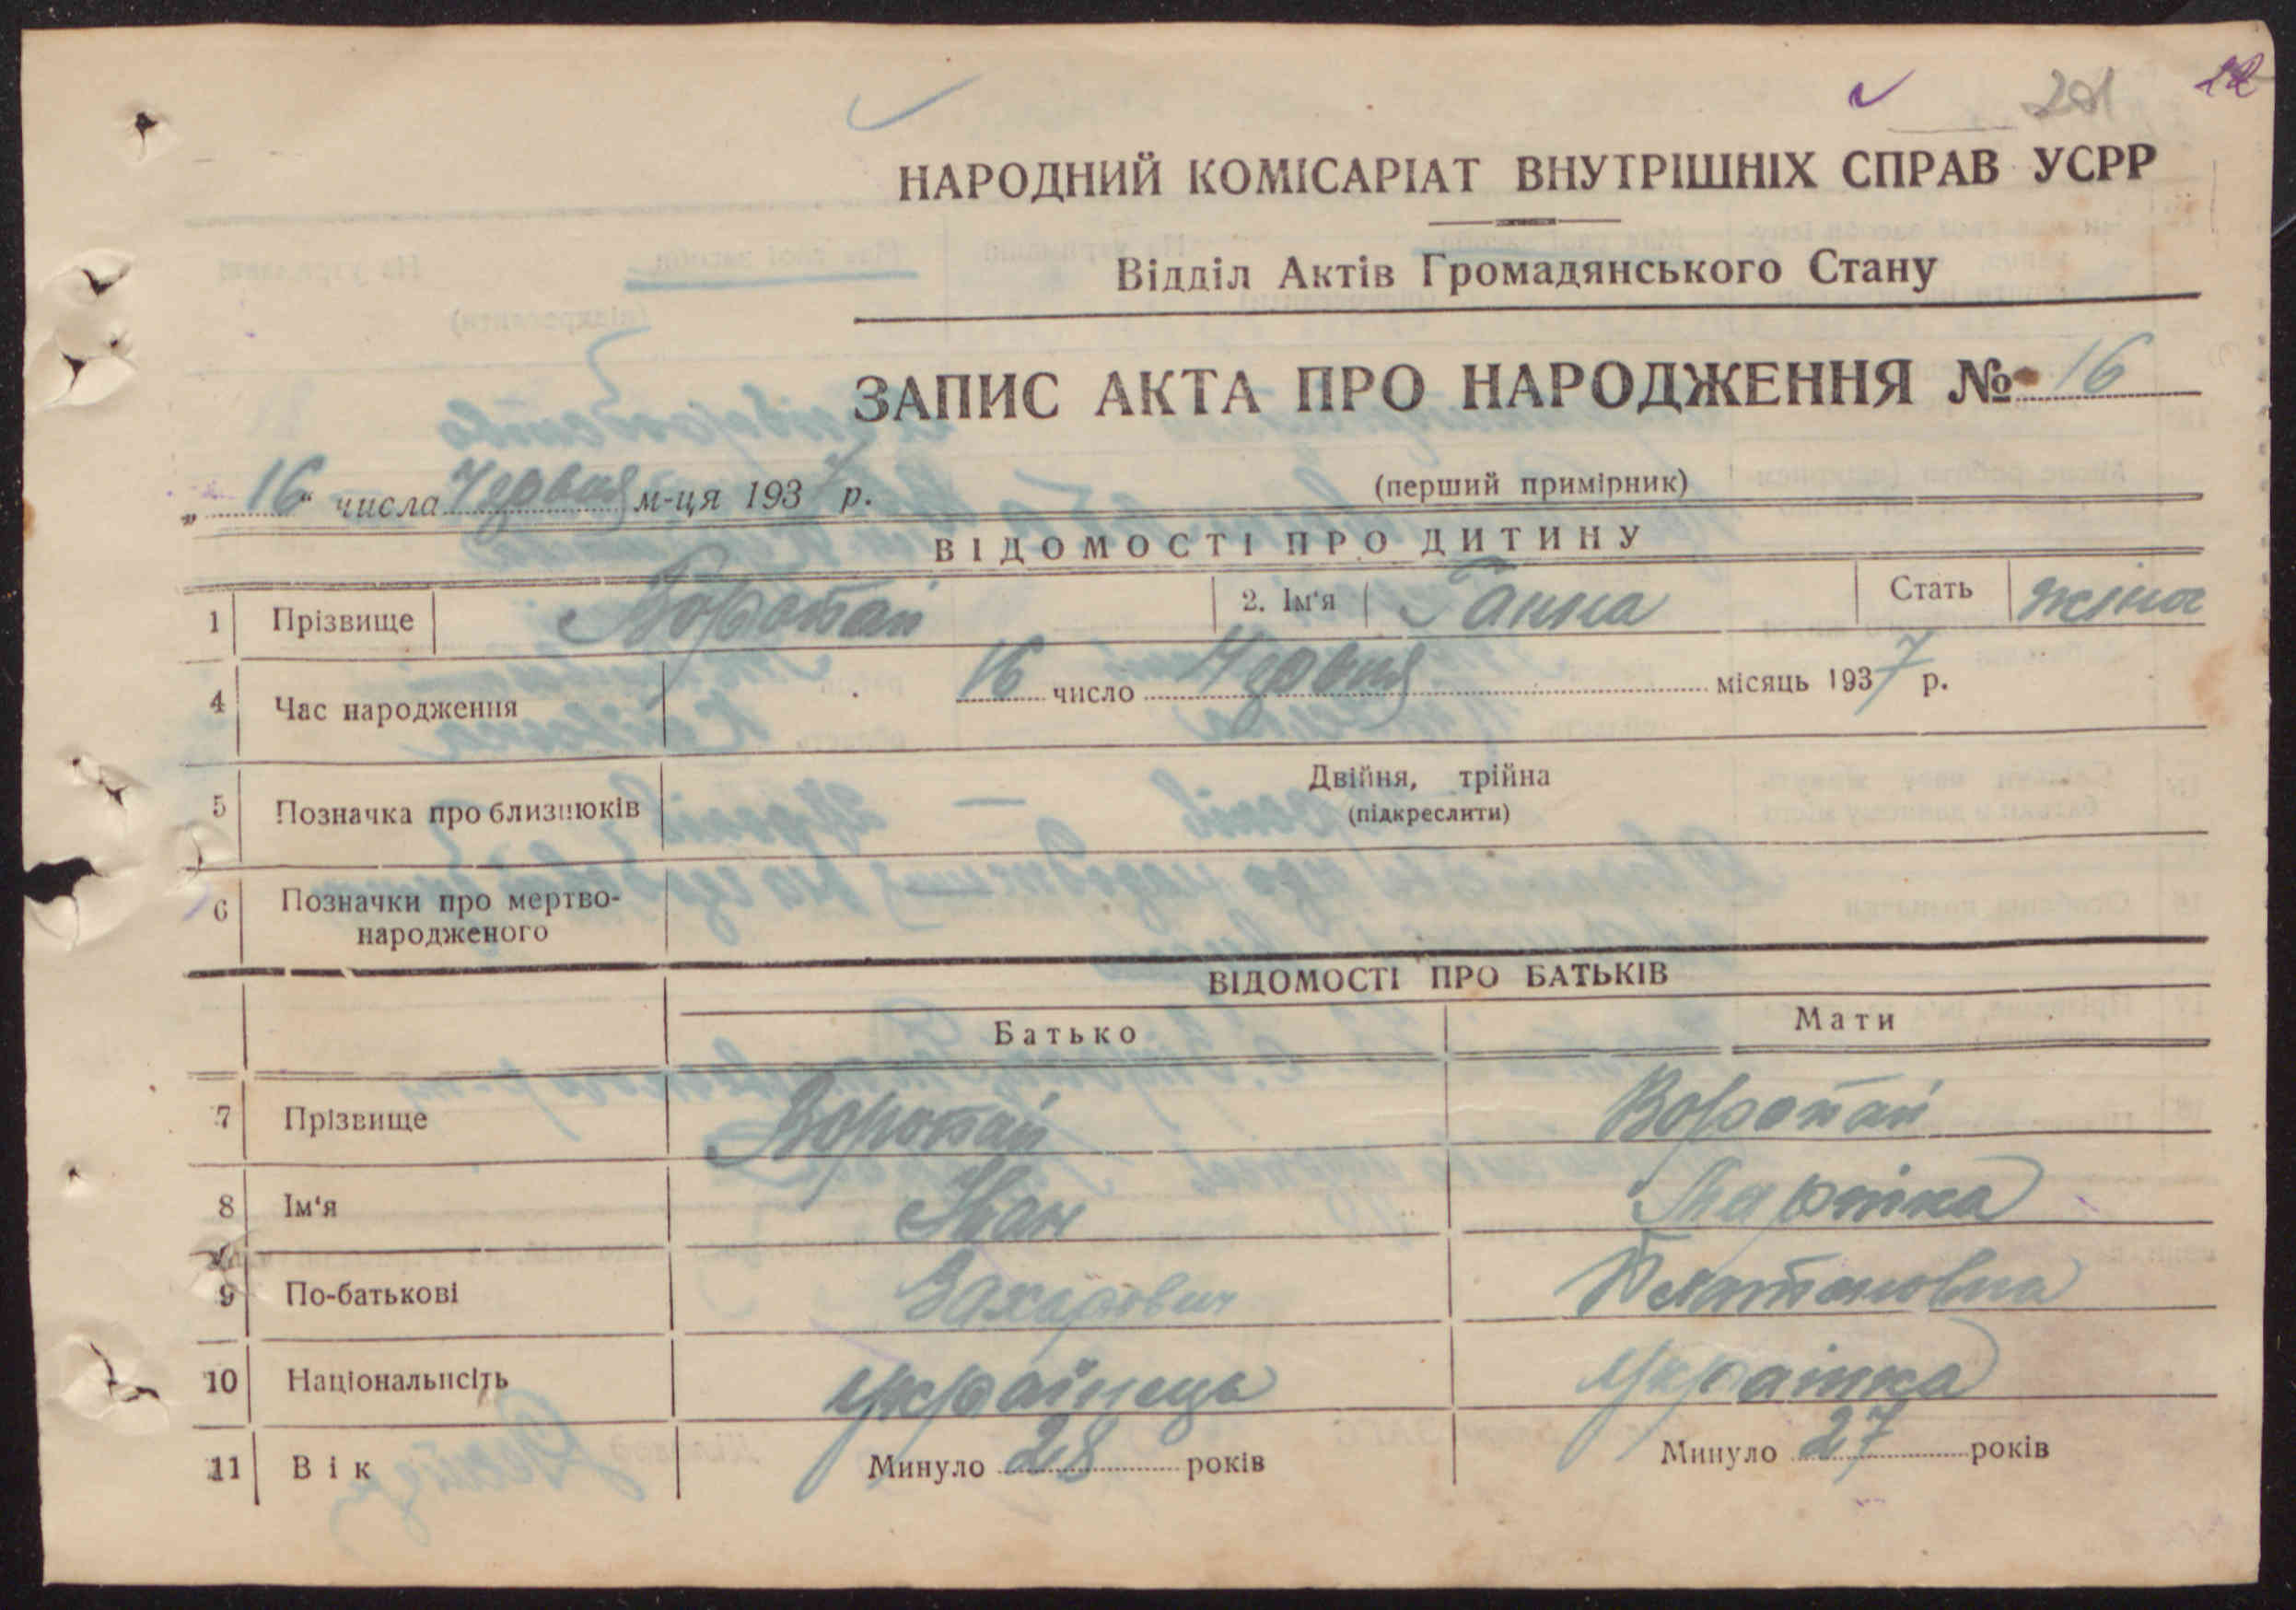 201 22
НАРОДНИЙ КОМІСАРІАТ ВНУТРІШНІХ СПРАВ УСРР
Відділ Актів Громадянського Стану
ЗАПИС АКТА ПРО НАРОДЖЕННЯ № 16
„16“ числа Червня м-ця 1937 р.
(перший примірник)
ВІДОМОСТІ ПРО ДИТИНУ
1 Прізвище Воропай 2. Ім'я Ганна Стать жіноч
4 Час народження 16 число Червня місяць 1937 р.
5 Позначка про близнюків Двійня, трійна
(підкреслити)
6 Позначки про мертво-
народженого
ВІДОМОСТІ ПРО БАТЬКІВ
Батько Мати
7 Прізвище Воропай Воропай
8 Ім'я Іван
9 По-батькові Захарович Платоновна
10 Національнсіть українець українка
11 Вік Минуло 28 років Минуло 27 років